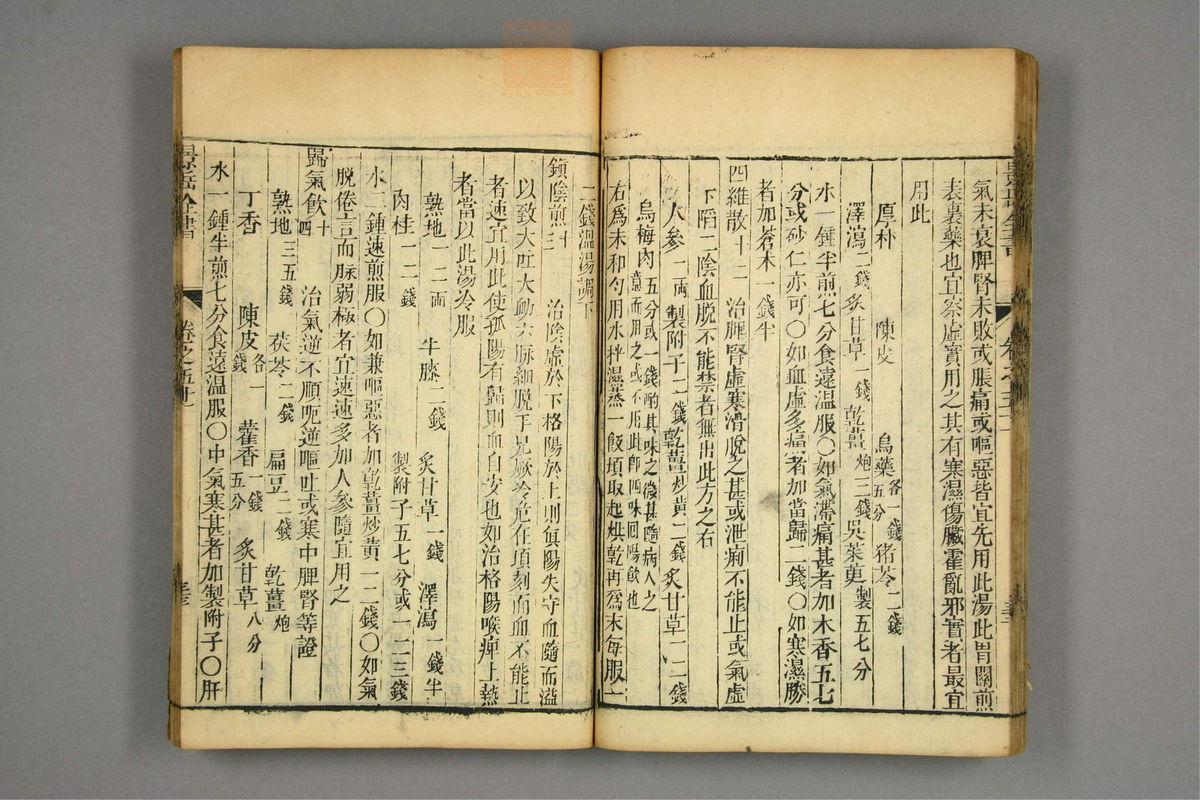 氣未衰脾腎未敗或脹痛或嘔惡皆宜先用此湯此胃關煎
表裏藥也宜察虛實用之其有寒濕傷臟霍亂邪實者最宜
用此
厚朴 陳皮 烏藥各一錢五分 猪苓二錢
澤瀉二錢 炙甘草一錢 乾薑炮二錢 吳茱萸製五七分
水一鍾半煎七分食遠溫服〇如氣滯痛甚者加木香五七
分或砂仁亦可〇如血虛多痛者加當歸二錢〇如寒濕勝
者加蒼术一錢半
四維散十二 治脾腎虛寒滑脫之甚或泄痢不能止或氣虛
下陷二陰血脫不能禁者無出此方之右
人參一兩 製附子二錢 乾薑炒黃二錢 炙甘草一二錢
烏梅肉五分或一錢酌其味之微甚隨病人之
意而用之或不用此即四味囘陽飲也
右爲末和勻用水拌濕蒸一飯頃取起烘乾再爲末每服一
二錢溫湯調下
鎮陰煎十三 治陰虛於下格陽於上則眞陽失守血隨而溢
以致大吐大衂六脉細脫手足厥冷危在頃刻而血不能止
者速宜用此使孤陽有歸則血自安也如治格陽喉痺上熱
者當以此湯冷服
熟地一二兩 牛膝二錢 炙甘草一錢 澤瀉一錢半
肉桂一二錢 製附子五七分或一二三錢
水二鍾速煎服〇如兼嘔惡者加乾薑炒黃一二錢〇如氣
脫倦言而脉弱極者宜速速多加人參隨宜用之
歸氣飲十四 治氣逆不順呃逆嘔吐或寒中脾腎等證
熟地三五錢 茯苓二錢 扁豆二錢 乾薑炮
丁香 陳皮各一錢 藿香一錢五分 炙甘草八分
水一鍾半煎七分食遠溫服〇中氣寒甚者加製附子〇肝